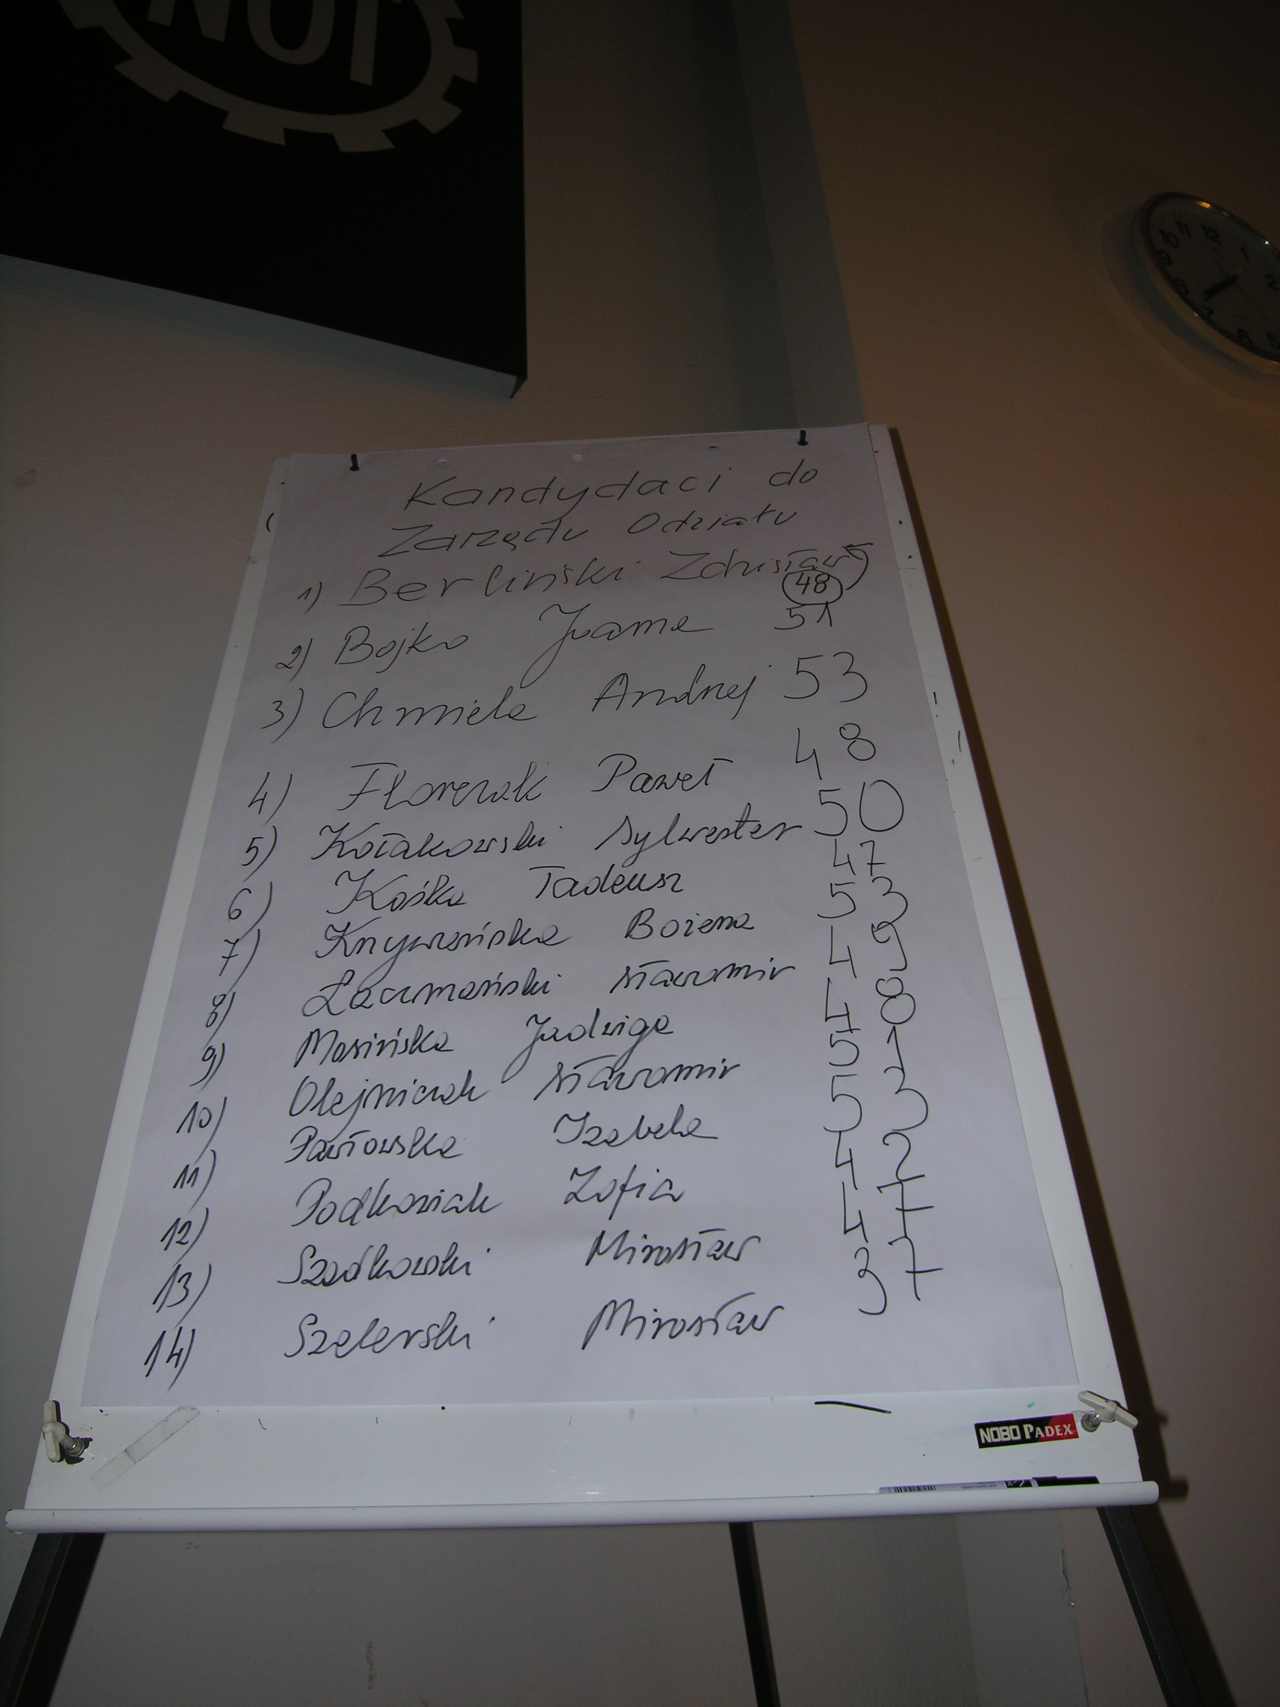 NOT
12
11
10
1
Kandydaci do
Zarządu Odziału
1) Berliński Zdzisław
48
2) Bojko Joanna 51
3) Chmiela Andrzej 53
4) Florczak Paweł 48
5) Kołakowski Sylwester 50
6) Kośka Tadeusz 47
7) Krzywańska Bożena 53
8) Laczmański Sławomir 49
9) Mosińska Jadwiga 48
10) Olejniczak Sławomir 51
11) Pawłowska Izabela 53
12) Podkowiak Zofia 42
13) Szadkowski Mirosław 47
14) Szelerski Mirosław 37
NOBO PADEX